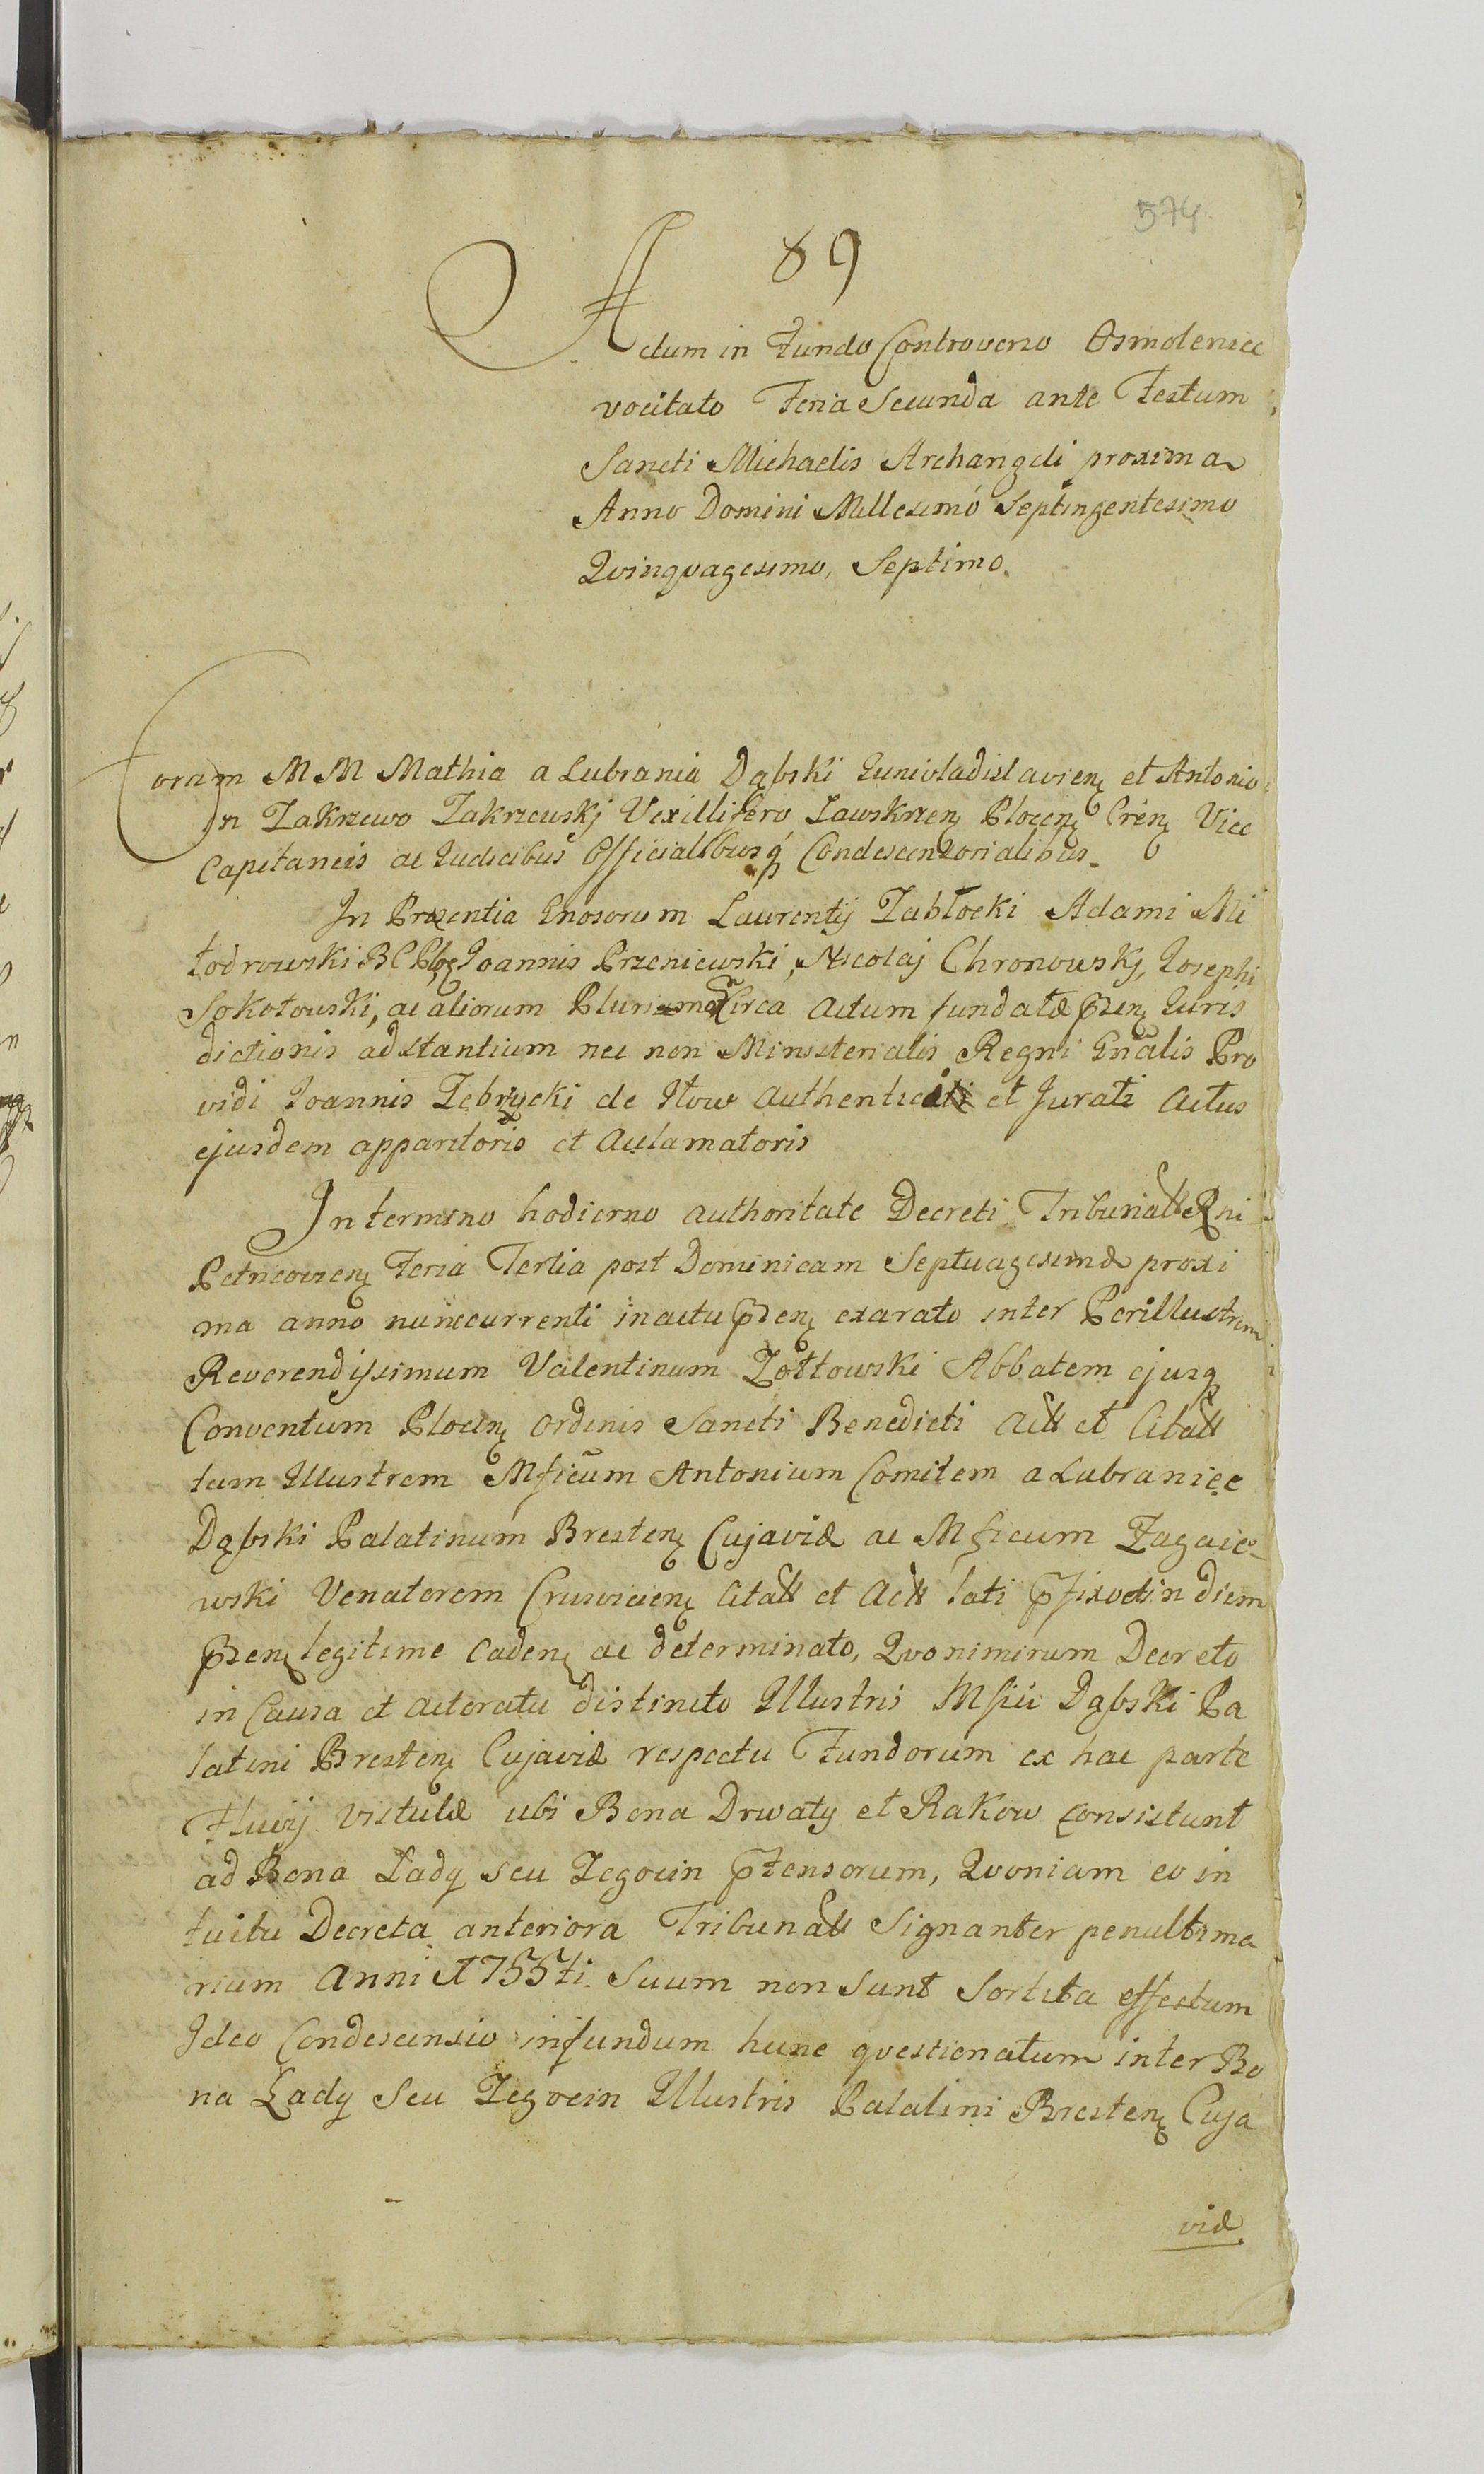 574
89
Actum in Fundo Controverso Osmolenice
vocitato Feria Secunda ante Festum
Sancti Michaelis Archangeli proxima
Anno Domini Millesimó Septingentesimo
Qvinqvagesimo, Septimo.
Coram M M Mathia a Lubrania Dąbski Junivladislavien et Antonio
in Zakrzewo Zakrzewskj Vexillifero Plocen Vice
Capitaneis ac Iudicibus Officialibusq Condescensorialibus
In Præsentia Gnosorum Laurentij Zabłocki Adami Mi
łodrowski Joannis Przeniewski, Nicolaj Chronowskj, Josephi
Sokołowski, ac aliorum Circa Actum fundatæ pzen Iuris
dictionis adstantium nec non Ministerialis Regni Gnalis Pro
vidi Joannis Zebrycki de Itow et Jurati Actus
ejusdem apparitoris et Aclamatoris
In termino hodierno authoritate Decreti Tribunall Rni
Petricovien Feria Tertia post Dominicam Septuagesimæ proxi
ma anno nunccurrenti inactu pzen exarato inter Perillustrem
Reverendissimum Valentinum Zołtowski Abbatem ejusq
Conventum Plocen Ordinis Sancti Benedicti Act et Citatt
tum Illustrem Mficum Antonium Comitem a Lubraniec
Dąbski Palatinum Bresten Cujaviæ ac Mficum Zagaie-
wski Venatorem Crusvicien Citatt et Act lati in diem
pzen legitime caden ac determinato, Qvonimirum Decreto
in Causa et actoratu distincto Illustris Mfici Dąbski Pa
latini Bresten Cujaviæ respectu Fundorum ex hac parte
Fluvij Vistulæ ubi Bona Drwaty et Rakow consistunt
ad Bona Lady seu Zegocin ptensorum, Qvoniam eo in
tuitu Decreta anteriora Tribunall Signanter penultima
rium Anni 1755ti Suum non sunt Sortita effectum
Ideo Condescensio infundum hunc qvestionatum inter Bo
na Lady Seu Zegocin Illustris Palatini Bresten Cuja
viæ